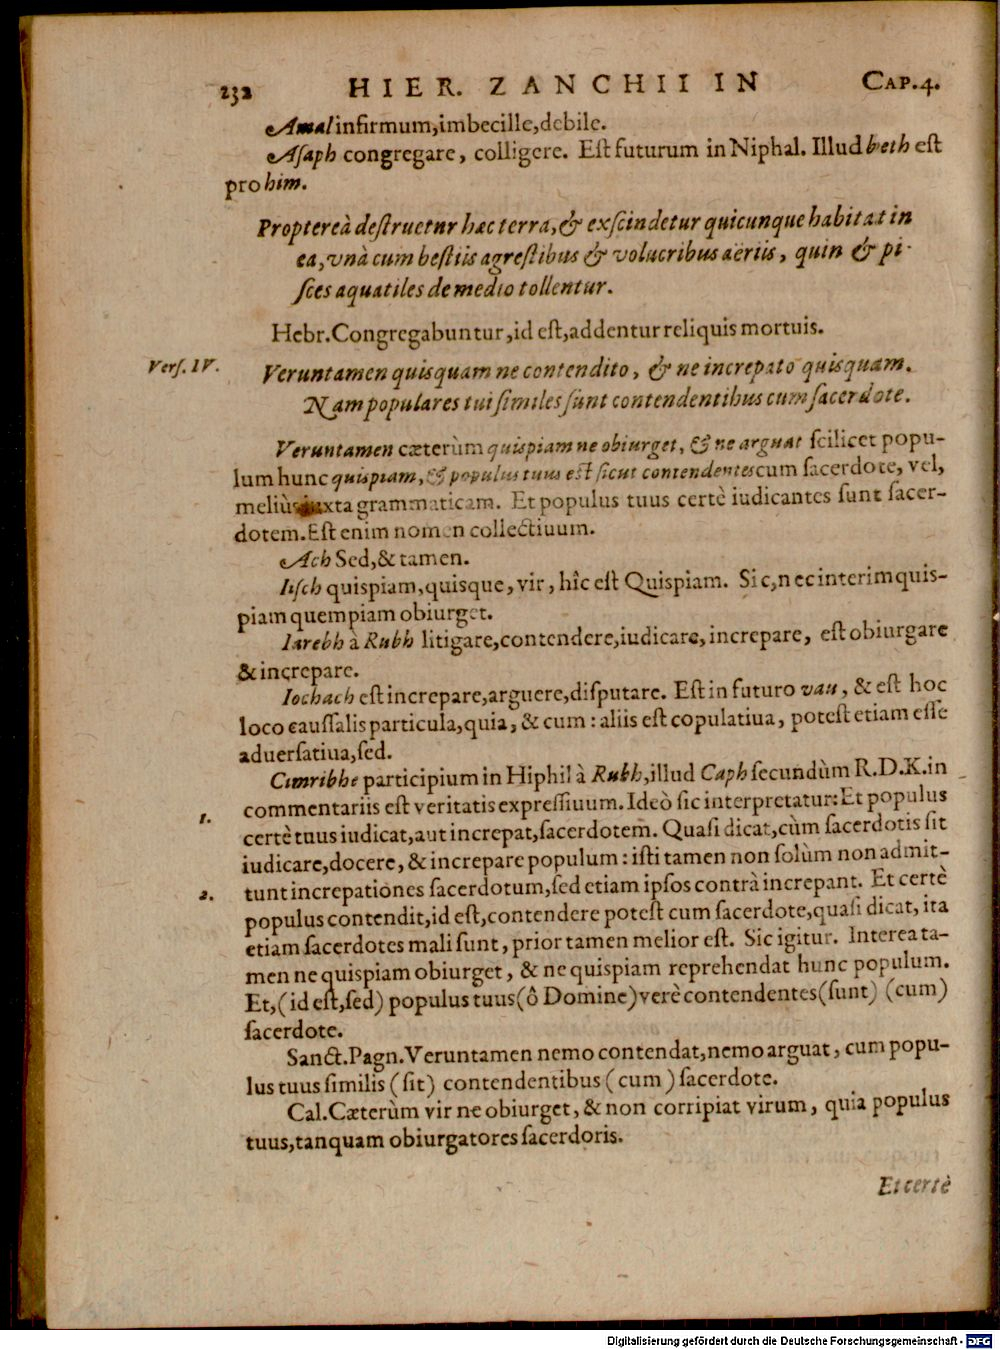 232 HIER. ZANCHII IN CAP.4.
Amal infirmum,imbecille,debile.
Aſaph congregare, colligere. Eſt futurum in Niphal. Illud beth eſt
pro him.
Proptereà deſtruetur hæc terra,& exſcindetur quicunque habitat in
ea,vnà cum beſtiis agreſtibus & volucribus aëriis, quin & pi-
ſces aquatiles de medio tollentur.
Hebr.Congregabuntur,id eſt,addentur reliquis mortuis.
Verſ. IV.
Veruntamen quisquam ne contendito, & ne increpato quisquam.
Nam populares tui ſimiles ſunt contendentibus cum ſacerdote.
Veruntamen cæterùm quispiam ne obiurget, & ne arguat ſcilicet popu-
lum hunc quispiam,& populus tuus eſt ſicut contendentes cum ſacerdote, vel,
meliùs iuxta grammaticam. Et populus tuus certè iudicantes ſunt ſacer-
dotem.Eſt enim nomen collectiuum.
Ach Sed,& tamen.
Iiſch quispiam,quisque, vir, hîc eſt Quispiam. Sic,nec interim quis-
piam quempiam obiurget.
Iarebh à Rubh litigare,contendere,iudicare, increpare, eſt obiurgare
& increpare.
Iochach eſt increpare,arguere,diſputare. Eſt in futuro vau, & eſt hoc
loco cauſſalis particula,quia, & cum : aliis eſt copulatiua, poteſt etiam eſſe
aduerſatiua,ſed.
Cimribhe participium in Hiphil à Rubh,illud Caph ſecundùm R.D.K.in
commentariis eſt veritatis expreſſiuum. Ideò ſic interpretatur: Et populus
1.
certè tuus iudicat,aut increpat,ſacerdotem. Quaſi dicat,cùm ſacerdotis ſit
iudicare,docere, & increpare populum : iſti tamen non ſolùm non admit-
2.
tunt increpationes ſacerdotum,ſed etiam ipſos contrà increpant. Et certè
populus contendit,id eſt,contendere poteſt cum ſacerdote,quaſi dicat, ita
etiam ſacerdotes mali ſunt, prior tamen melior eſt. Sic igitur. Interea ta-
men ne quispiam obiurget, & ne quispiam reprehendat hunc populum.
Et,(id eſt,ſed) populus tuus(ô Domine)verè contendentes(ſunt) (cum)
ſacerdote.
Sanct.Pagn.Veruntamen nemo contendat,nemo arguat, cum popu-
lus tuus ſimilis (ſit) contendentibus (cum) ſacerdote.
Cal.Cæterùm vir ne obiurget, & non corripiat virum, quia populus
tuus,tanquam obiurgatores ſacerdotis.
Et certè
Digitalisierung gefördert durch die Deutsche Forschungsgemeinschaft - DFG